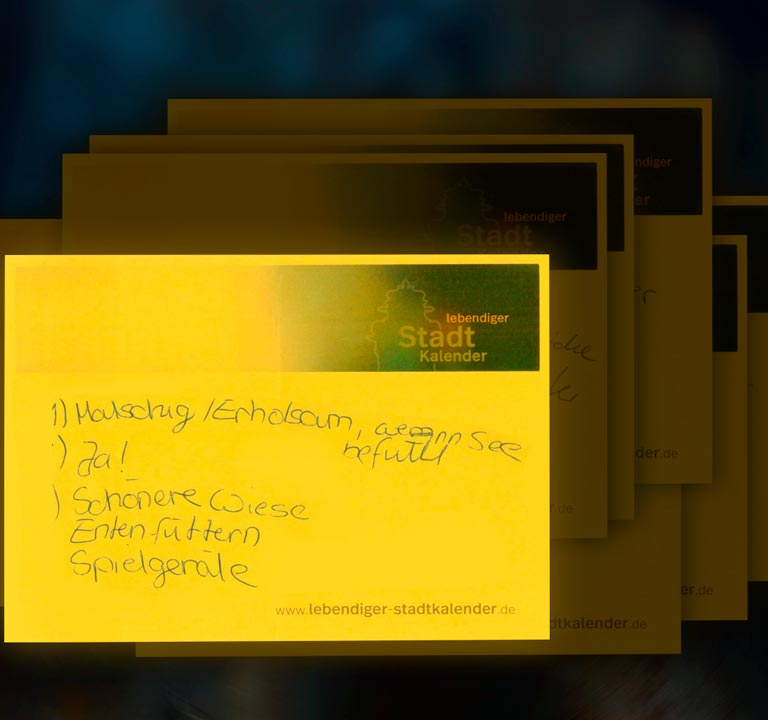 ndiger
er
lebendiger
Stadt
lebendiger
Stadt
Kalender
1) Matschig / Erholsam, wenn See
befüllt
) Ja!
) Schönere Wiese
Enten füttern
Spielgeräte
www.lebendiger-stadtkalender.de
er
cke
ler
der.de
.de
er.de
dtkalender.de